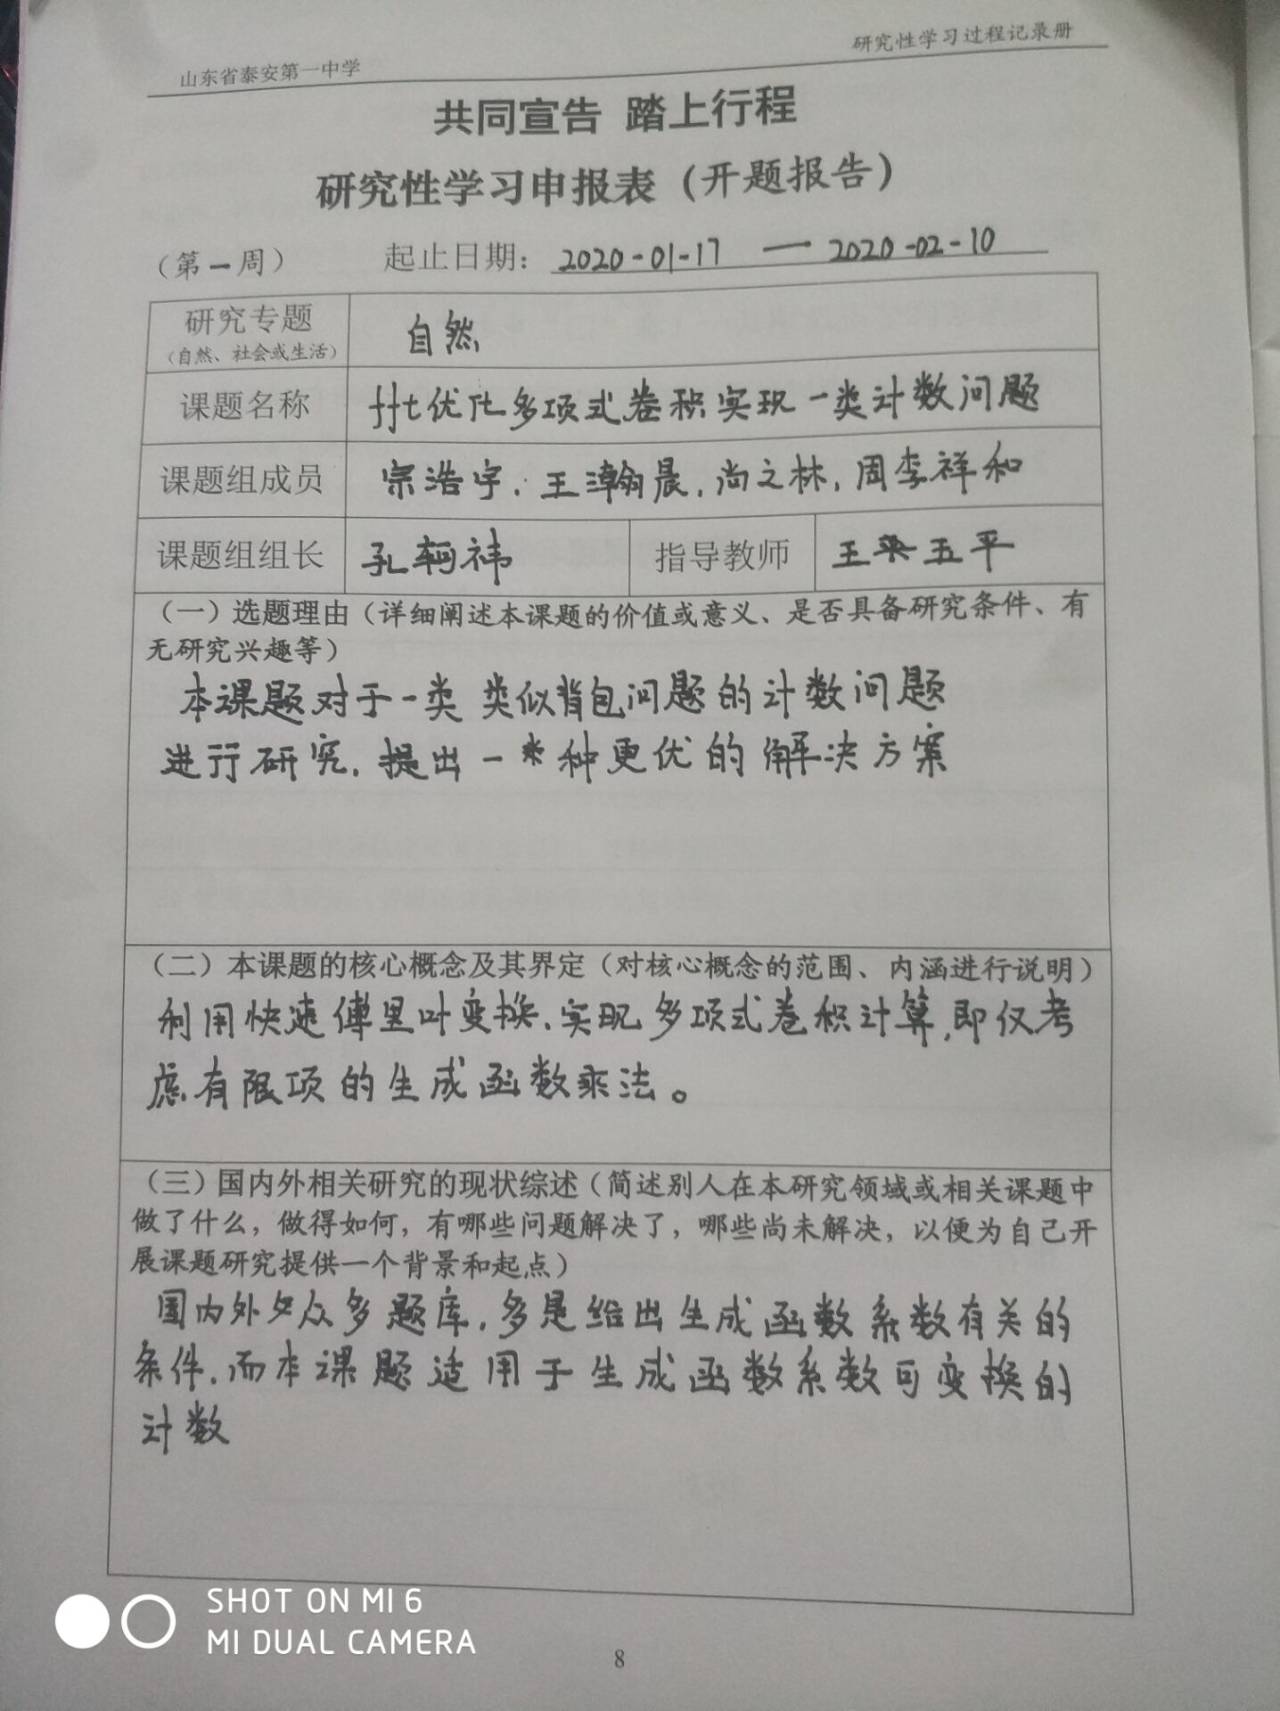 山东省泰安第一中学
研究性学习过程记录册
共同宣告 踏上行程
研究性学习申报表（开题报告）
（第一周） 起止日期：2020-01-17 — 2020-02-10
研究专题 自然
（自然、社会或生活）
课题名称 fft优化多项式卷积实现一类计数问题
课题组成员 宗浩宇、王瀚晨，尚之林，周李祥和
课题组组长 孔轲祎 指导教师 王 五平
（一）选题理由（详细阐述本课题的价值或意义、是否具备研究条件、有
无研究兴趣等）
本课题对于一类 类似背包问题的计数问题
进行研究，提出一种更优的解决方案
（二）本课题的核心概念及其界定（对核心概念的范围、内涵进行说明）
利用快速傅里叶变换，实现多项式卷积计算，即仅考
虑有限项的生成函数乘法。
（三）国内外相关研究的现状综述（简述别人在本研究领域或相关课题中
做了什么，做得如何，有哪些问题解决了，哪些尚未解决，以便为自己开
展课题研究提供一个背景和起点）
国内外众多题库，多是给出生成函数系数有关的
条件，而本课题适用于生成函数系数可变换的
计数
SHOT ON MI 6
MI DUAL CAMERA
8